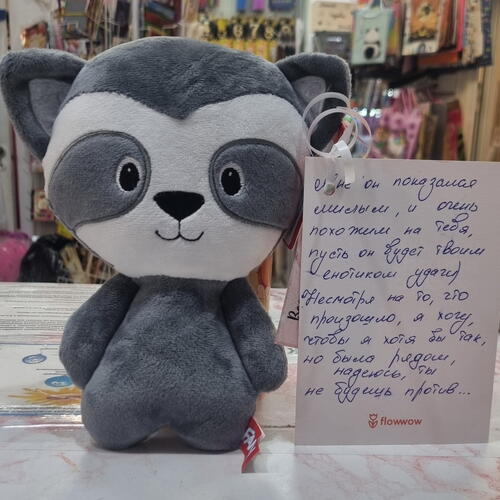 Мне он показался
милым, и очень
похожим на тебя,
пусть он будет твоим
енотиком удачи)
Несмотря на то, что
произошло, я хочу,
чтобы я хотя бы так,
но была рядом,
надеюсь, ты
не будешь против...
flowwow